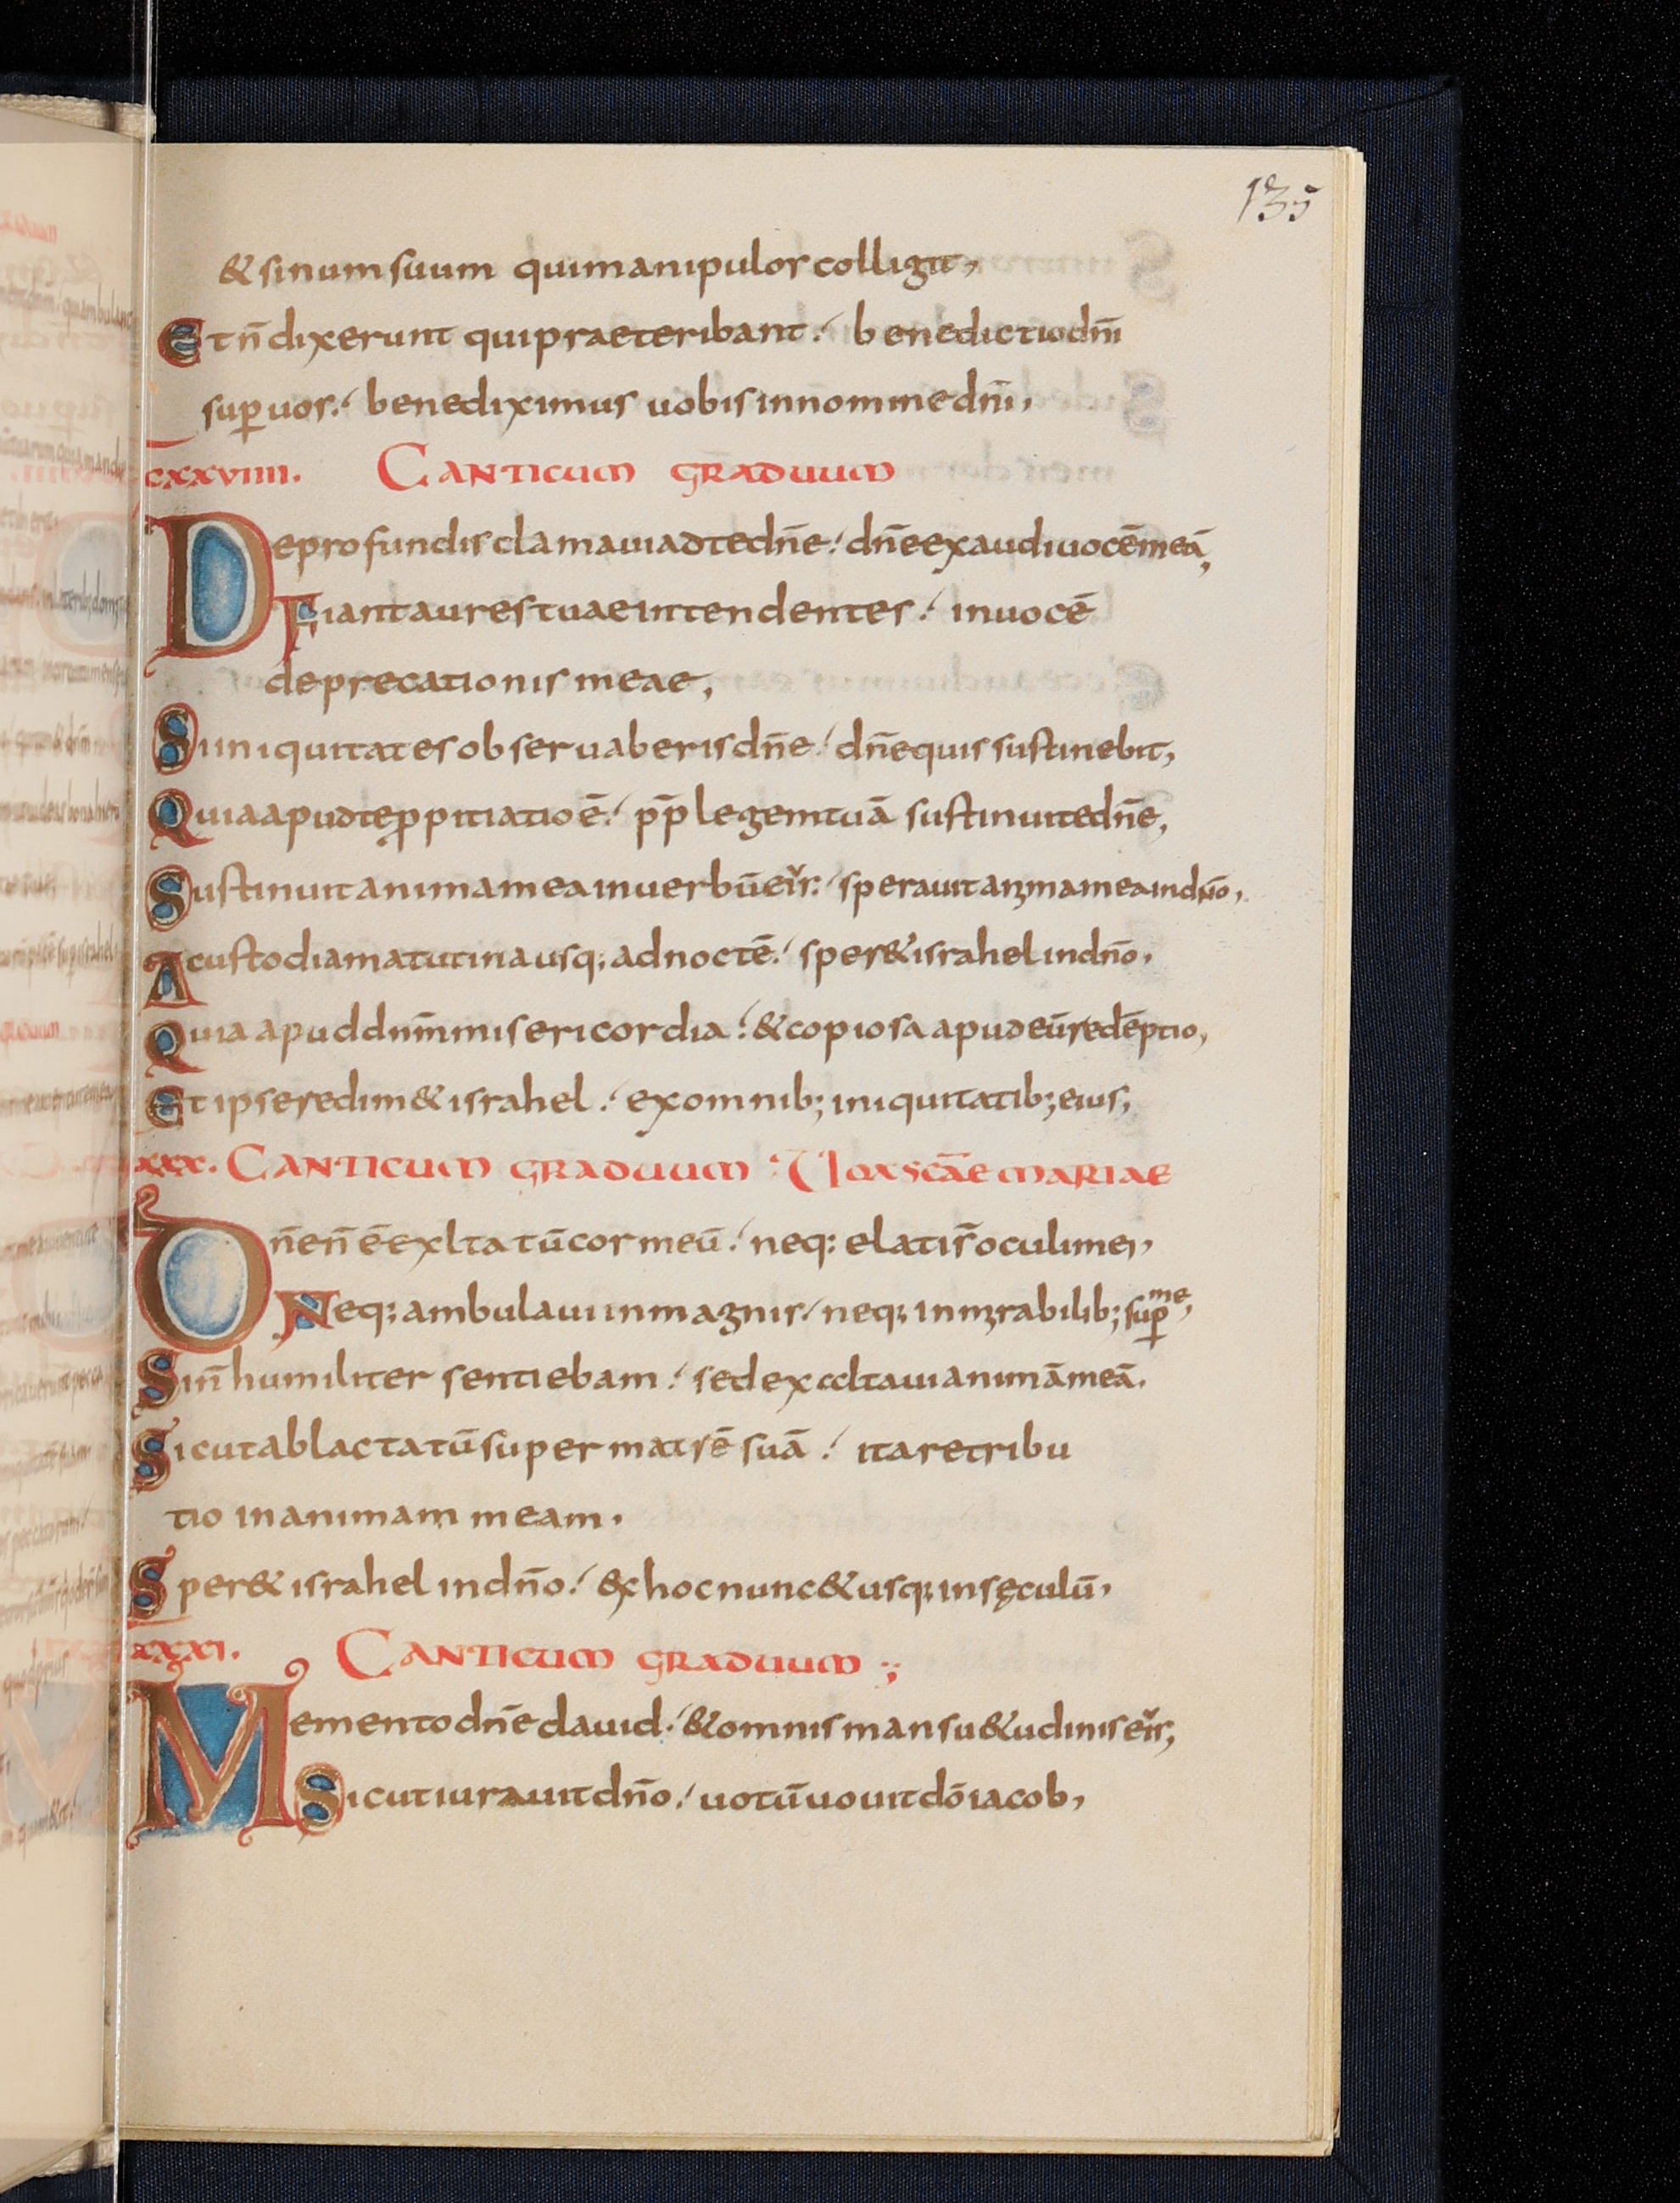 135
& sinum suum qui manipulos colligit,
Et n̄ dixerunt qui praeteribant: benedictio dn̄i
sup̱ uos: benediximus uobis in nomine dn̄i,
cxxviiii. CANTICUM GRADUUM
De profundis clamaui ad te dn̄e: dn̄e exaudi uocē meā,
Fiant aures tuae intendentes: in uocē
deprecationis meae,
Si iniquitates obseruaberis dn̄e: dn̄e quis sustinebit,
Quia apud te p̱pitiatio ē: pp̄ legem tuā sustinui te dn̄e,
Sustinuit anima mea in uerbū eīs: sperauit anima mea in dn̄o,
A custodia matutina usq; ad noctē: sper& israhel in dn̄o,
Quia apud dn̄m misericordia: & copiosa apud eū redēptio,
Et ipse redim& israhel: ex omnib; iniquitatib; eius,
xxx. CANTICUM GRADUUM: Uox scāe mariae
Dn̄e n̄ ē exltatū cor meū: neq: elati s̄ oculi mei,
Neq; ambulaui in magnis: neq; in mirabilib; sup̱ me,
Si n̄ humiliter sentiebam: sed exaltaui animā meā.
Sicut ablactatū super matrē suā: ita retribu
tio in animam meam.
Sper& israhel in dn̄o: ex hoc nunc & usq; in sęculū,
xxxi. CANTICUM GRADUUM:,
Memento dn̄e dauid: & omnis mansu&udinis eīs,
Sicut iurauit dn̄o: uotū uouit dō iacob,